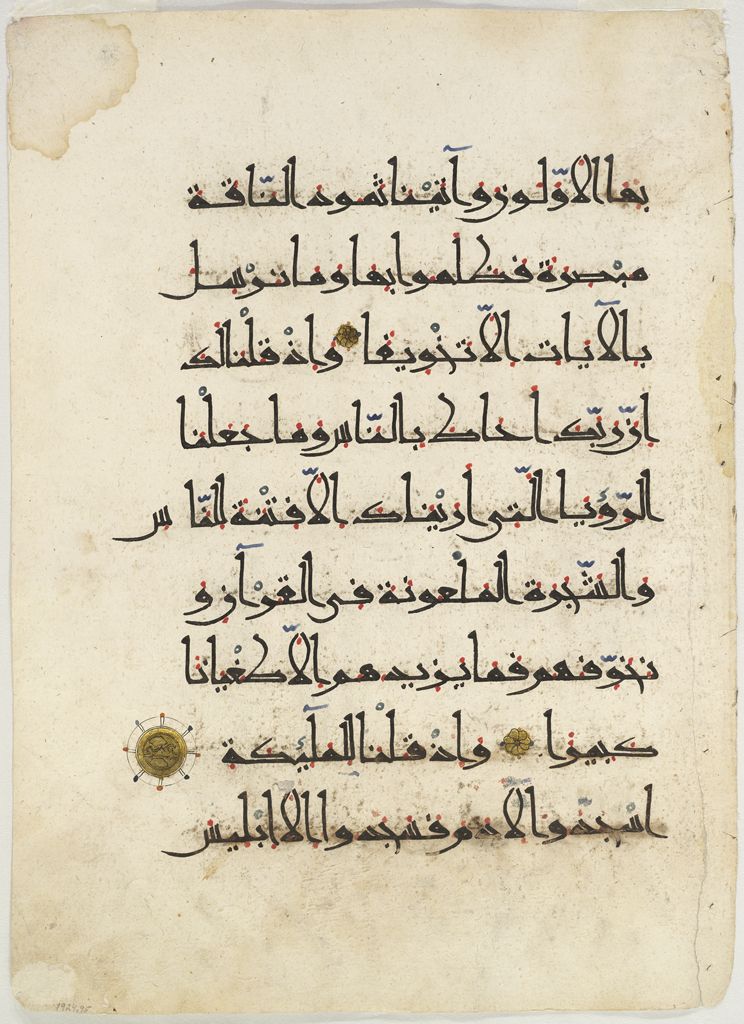 بها الاوّلون وآتينا ثمود النّاقة
مبصرة فظلموا بها وما نرسل
بالآيات الّا تخويفا واذ قلنا لك
انّ ربّك احاط بالنّاس وما جعلنا
الرّؤيا الّتي اريناك الّا فتنة للنّاس
والشّجرة الملعونة في القرآن و
نخوّفهم فما يزيدهم الّا طغيانا
كبيرا واذ قلنا للملٓئكة
اسجدوا لآدم فسجدوا الّا ابليس
1924.95